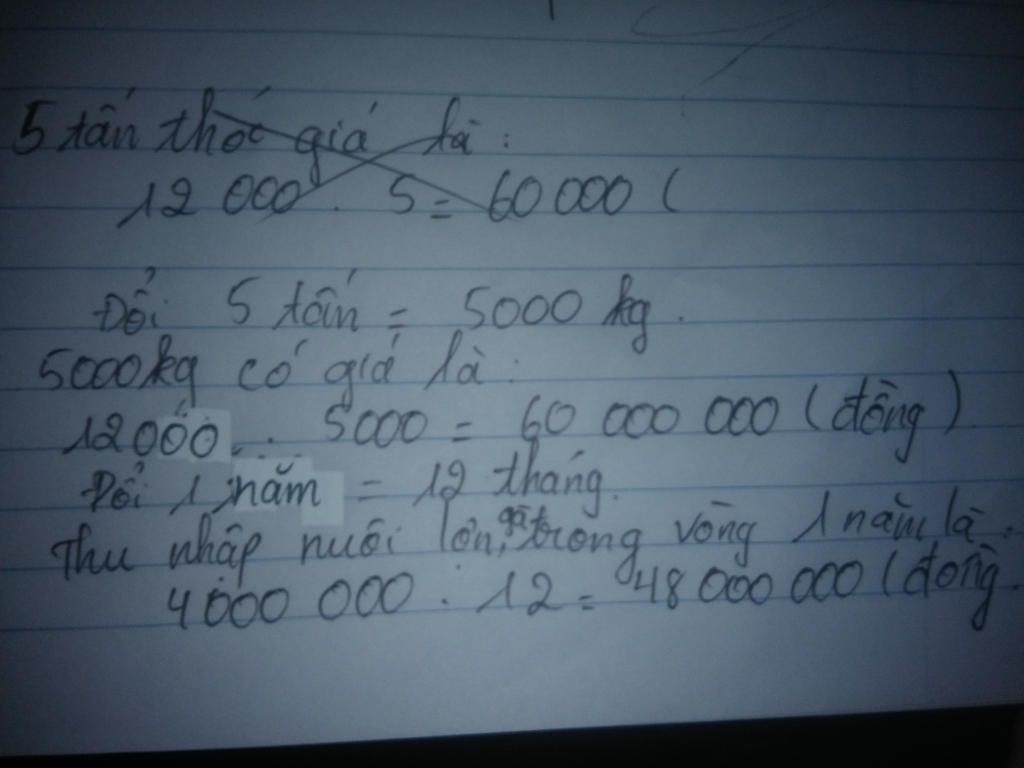 5 tấn thóc giá là:
12 000 . 5 = 60 000 (
Đổi 5 tấn = 5000 kg.
5000kg có giá là:
12000 . 5000 = 60 000 000 (đồng)
Đổi 1 năm = 12 tháng.
Thu nhập nuôi lợn, gà trong vòng 1 năm là:
4000 000 . 12 = 48 000 000 (đồng